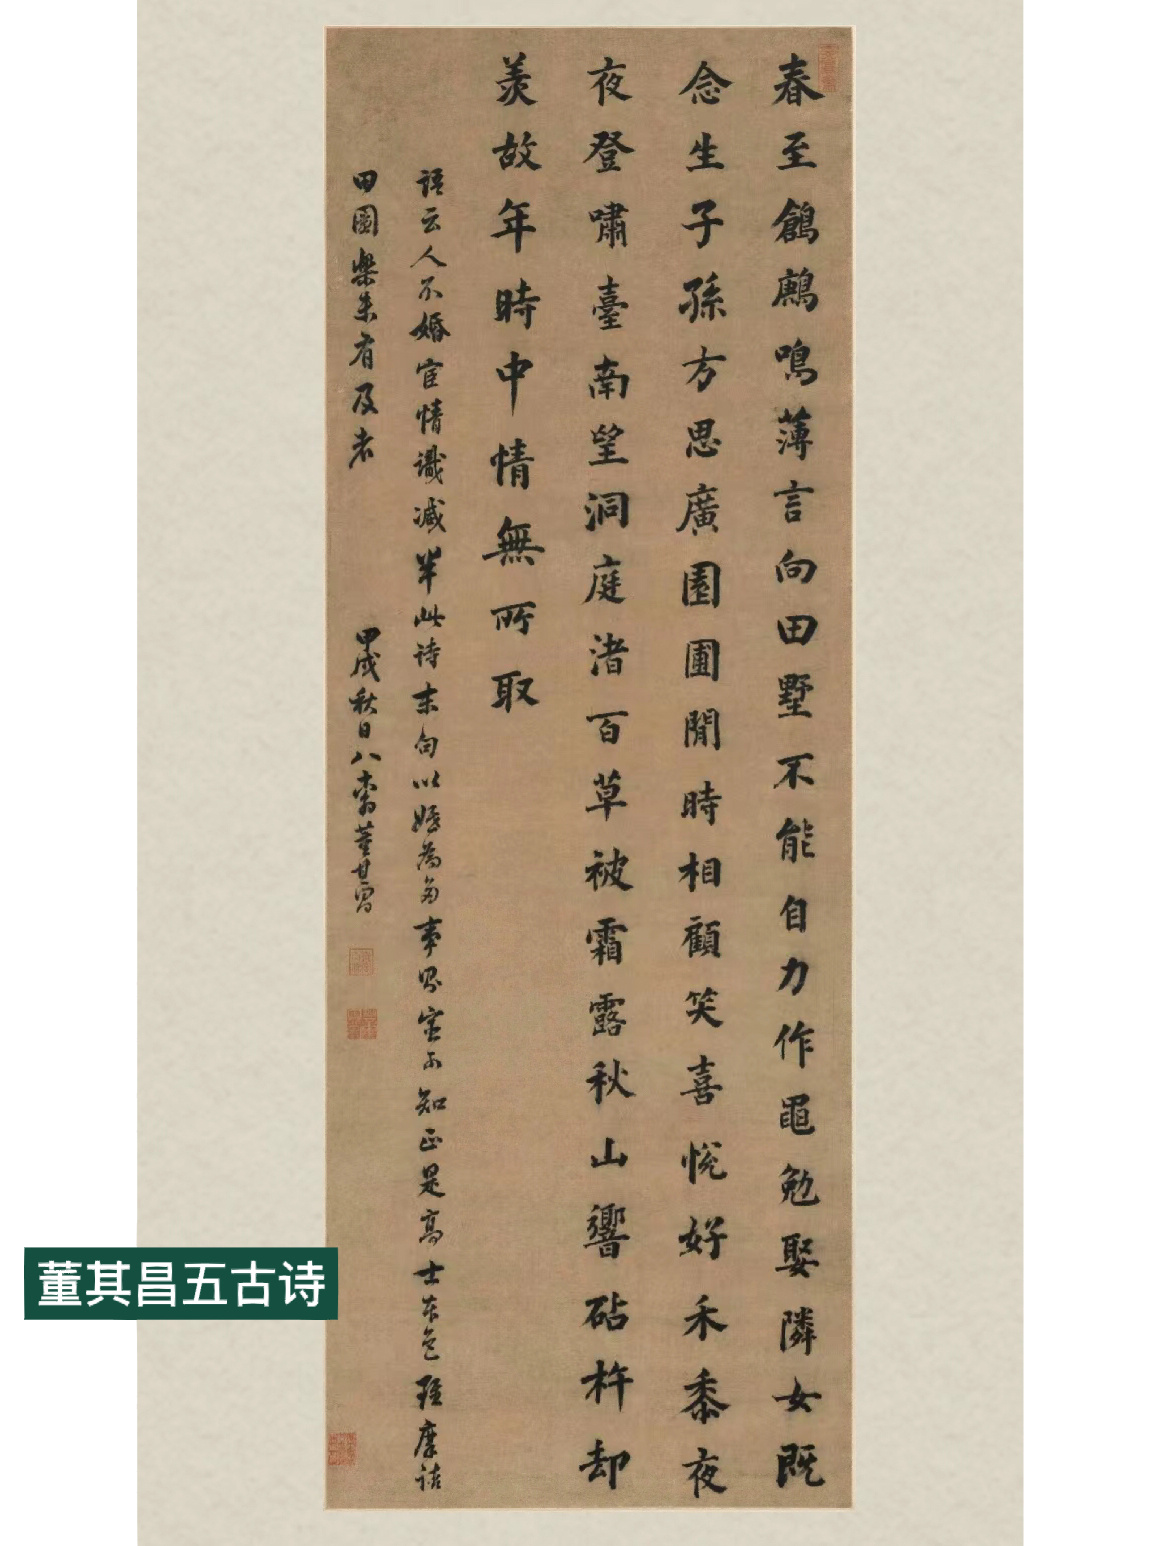 春至鶬鶊鳴薄言向田墅不能自力作黽勉娶隣女既
念生子孫方思廣園圃閒時相顧笑喜悅好禾黍夜
夜登嘯臺南望洞庭渚百草被霜露秋山響砧杵却
羨故年時中情無所取
語云人不婚宦情識减半此詩末句以婚為多事不知正是高士本色雖摩詰
田園樂未有及者 甲戌秋日八十翁董其昌
董其昌五古诗